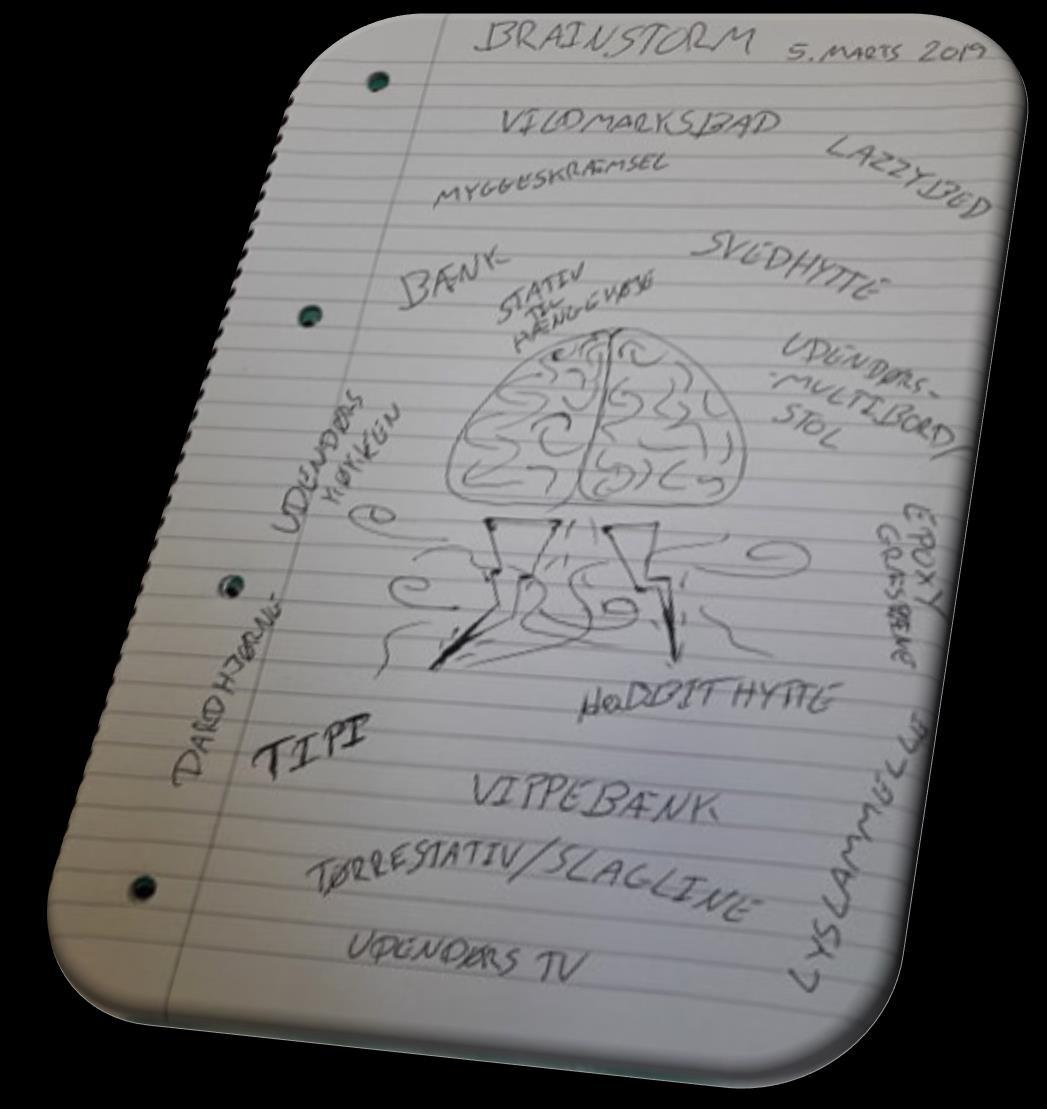 BRAINSTORM 5. MARTS 2019
VILDMARKSBAD
LAZZYBED
MYGGESKRÆMSEL
SVEDHYTTE
BÆNK
STATIV
TIL
HÆNGEKØJE
UDENDØRS-
-MULTIBORD/
STOL
UDENDØRS
KØKKEN
EPOXY
DARDHJØRNE
HOBBITHYTTE
TIPI
VIPPEBÆNK
TØRRESTATIV/SLAGLINE
UDENDØRS TV